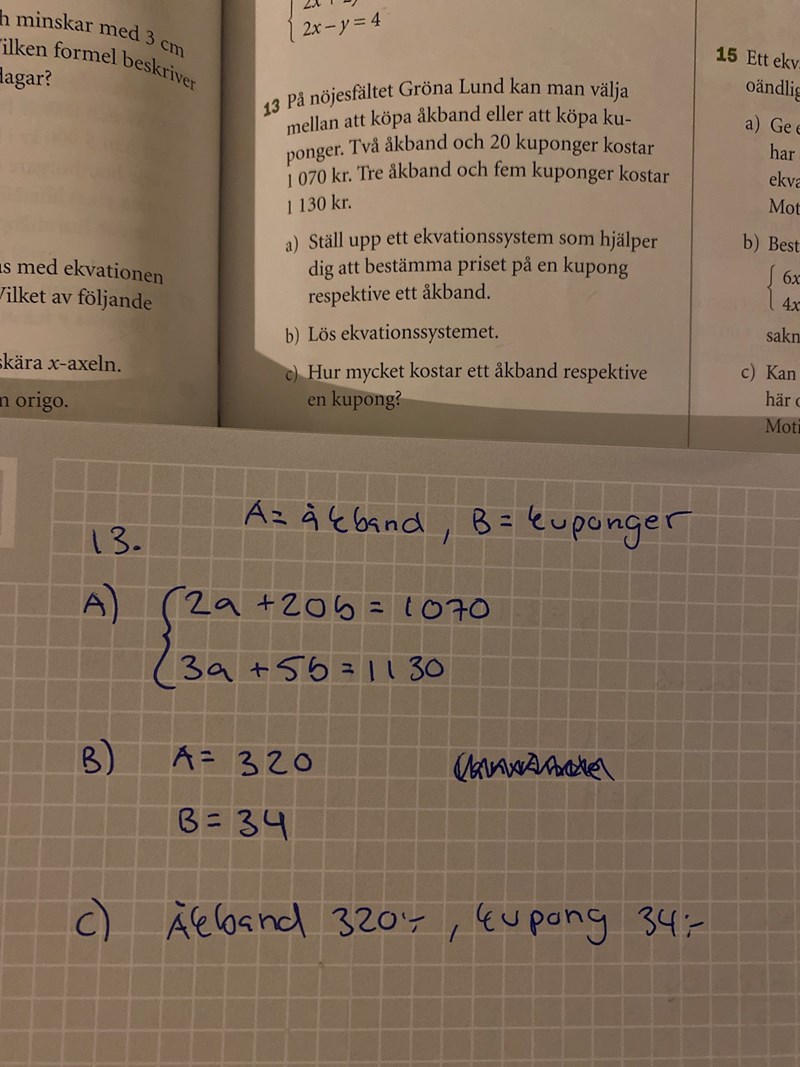 h minskar med 3 cm
ilken formel beskriver
lagar?
s med ekvationen
Vilket av följande
skära x-axeln.
n origo.
2x – y = 4
13 På nöjesfältet Gröna Lund kan man välja
mellan att köpa åkband eller att köpa ku-
ponger. Två åkband och 20 kuponger kostar
1 070 kr. Tre åkband och fem kuponger kostar
1 130 kr.
a) Ställ upp ett ekvationssystem som hjälper
dig att bestämma priset på en kupong
respektive ett åkband.
b) Lös ekvationssystemet.
c) Hur mycket kostar ett åkband respektive
en kupong?
15 Ett ekv
oändlig
a) Ge e
har
ekva
Mot
b) Best
6x
4x
sakn
c) Kan
här
Moti
A = åkband, B = kuponger
13.
A) 2a + 20b = 1070
3a + 5b = 1130
B) A = 320
B = 34
C) Åkband 320:-, kupong 34:-